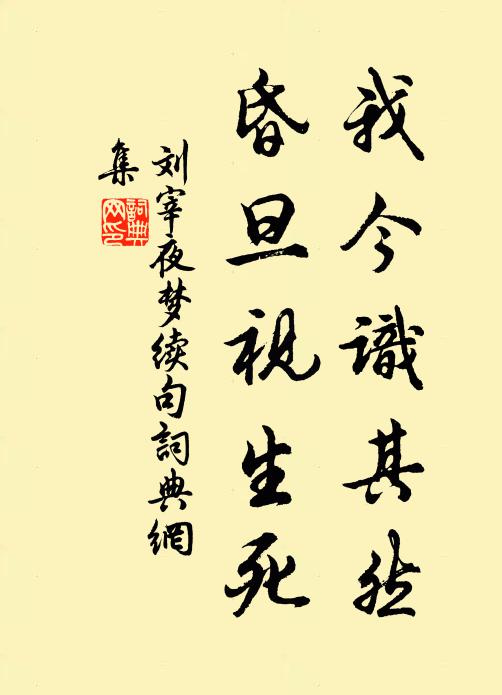 我今識其然
昏旦視生死
刘宰夜梦续句詞典網
集
詞典
网印